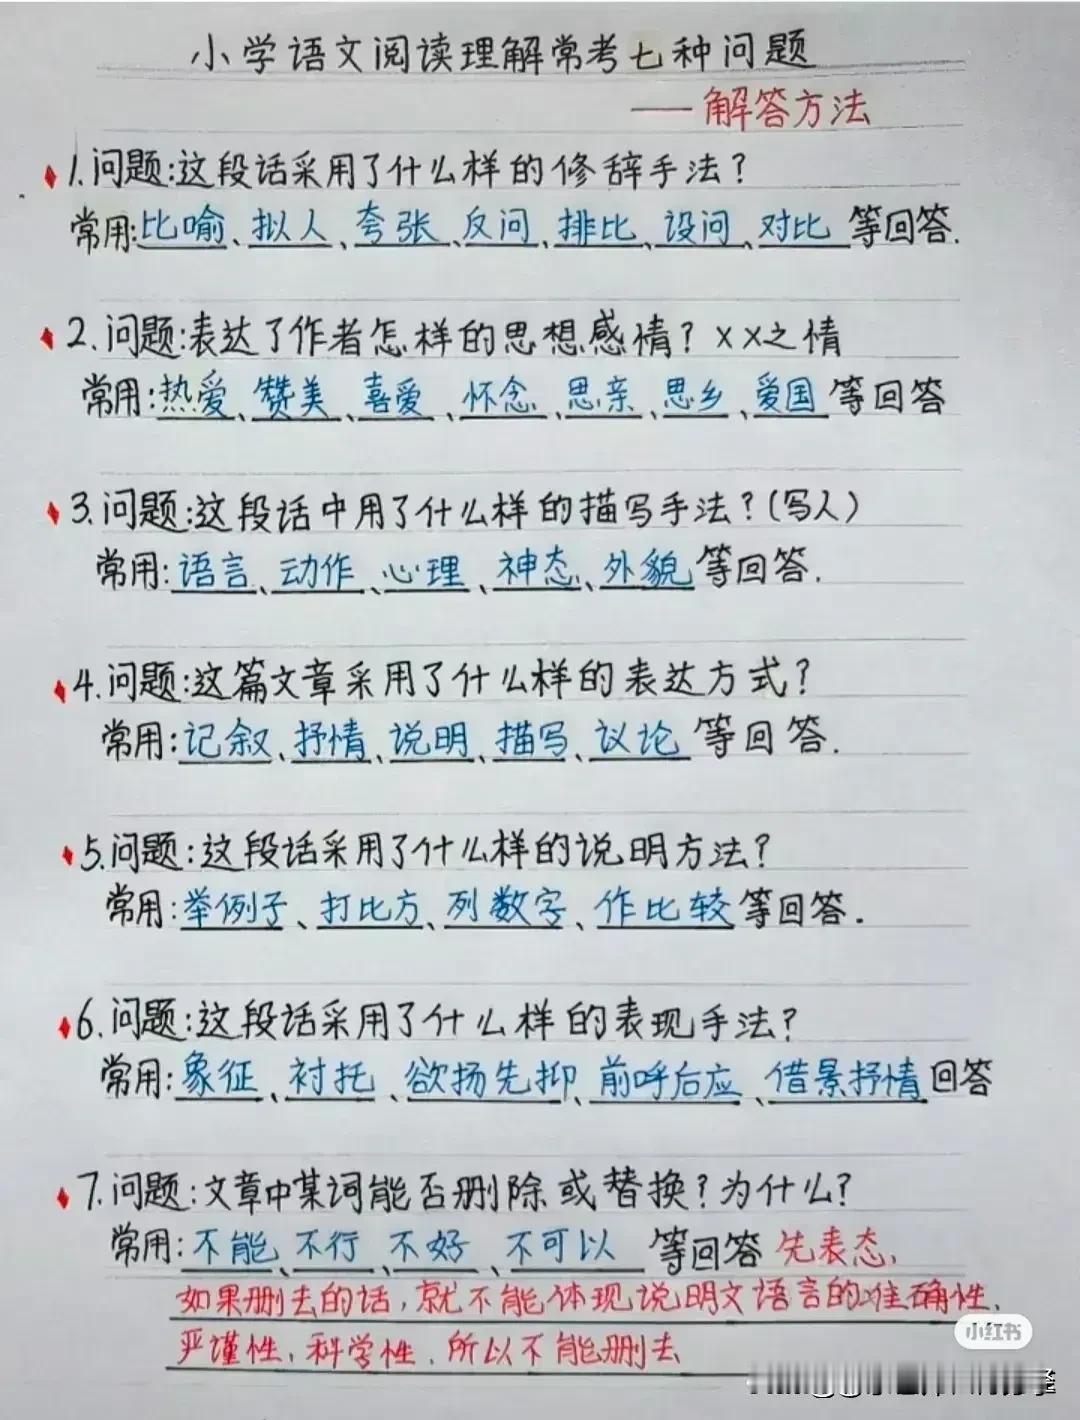 小学语文阅读理解常考七种问题
——解答方法
1.问题:这段话采用了什么样的修辞手法?
常用:比喻、拟人、夸张、反问、排比、设问、对比等回答.
2.问题:表达了作者怎样的思想感情?××之情
常用:热爱、赞美、喜爱、怀念、思亲、思乡、爱国等回答
3.问题:这段话中用了什么样的描写手法?(写人)
常用:语言、动作、心理、神态、外貌等回答.
4.问题:这篇文章采用了什么样的表达方式?
常用:记叙、抒情、说明、描写、议论 等回答.
5.问题:这段话采用了什么样的说明方法?
常用:举例子、打比方、列数字、作比较等回答.
6.问题:这段话采用了什么样的表现手法?
常用:象征、衬托、欲扬先抑、前呼后应、借景抒情回答
7.问题:文章中某词能否删除或替换?为什么?
常用:不能、不行、不好、不可以 等回答 先表态,
如果删去的话,就不能体现说明文语言的准确性,
严谨性,科学性.所以不能删去
小红书